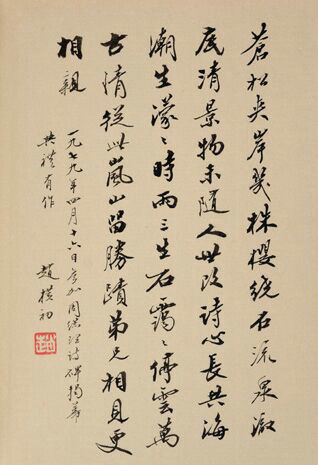 蒼松夾岸幾株櫻繞石流泉澈
底清景物未隨人世改詩心長共海
潮生濛〻時雨三生石靄〻停雲萬
古情從此嵐山留勝蹟弟兄相見更
相親
一九七九年四月十六日參加周總理詩碑揭幕
典禮有作
趙樸初